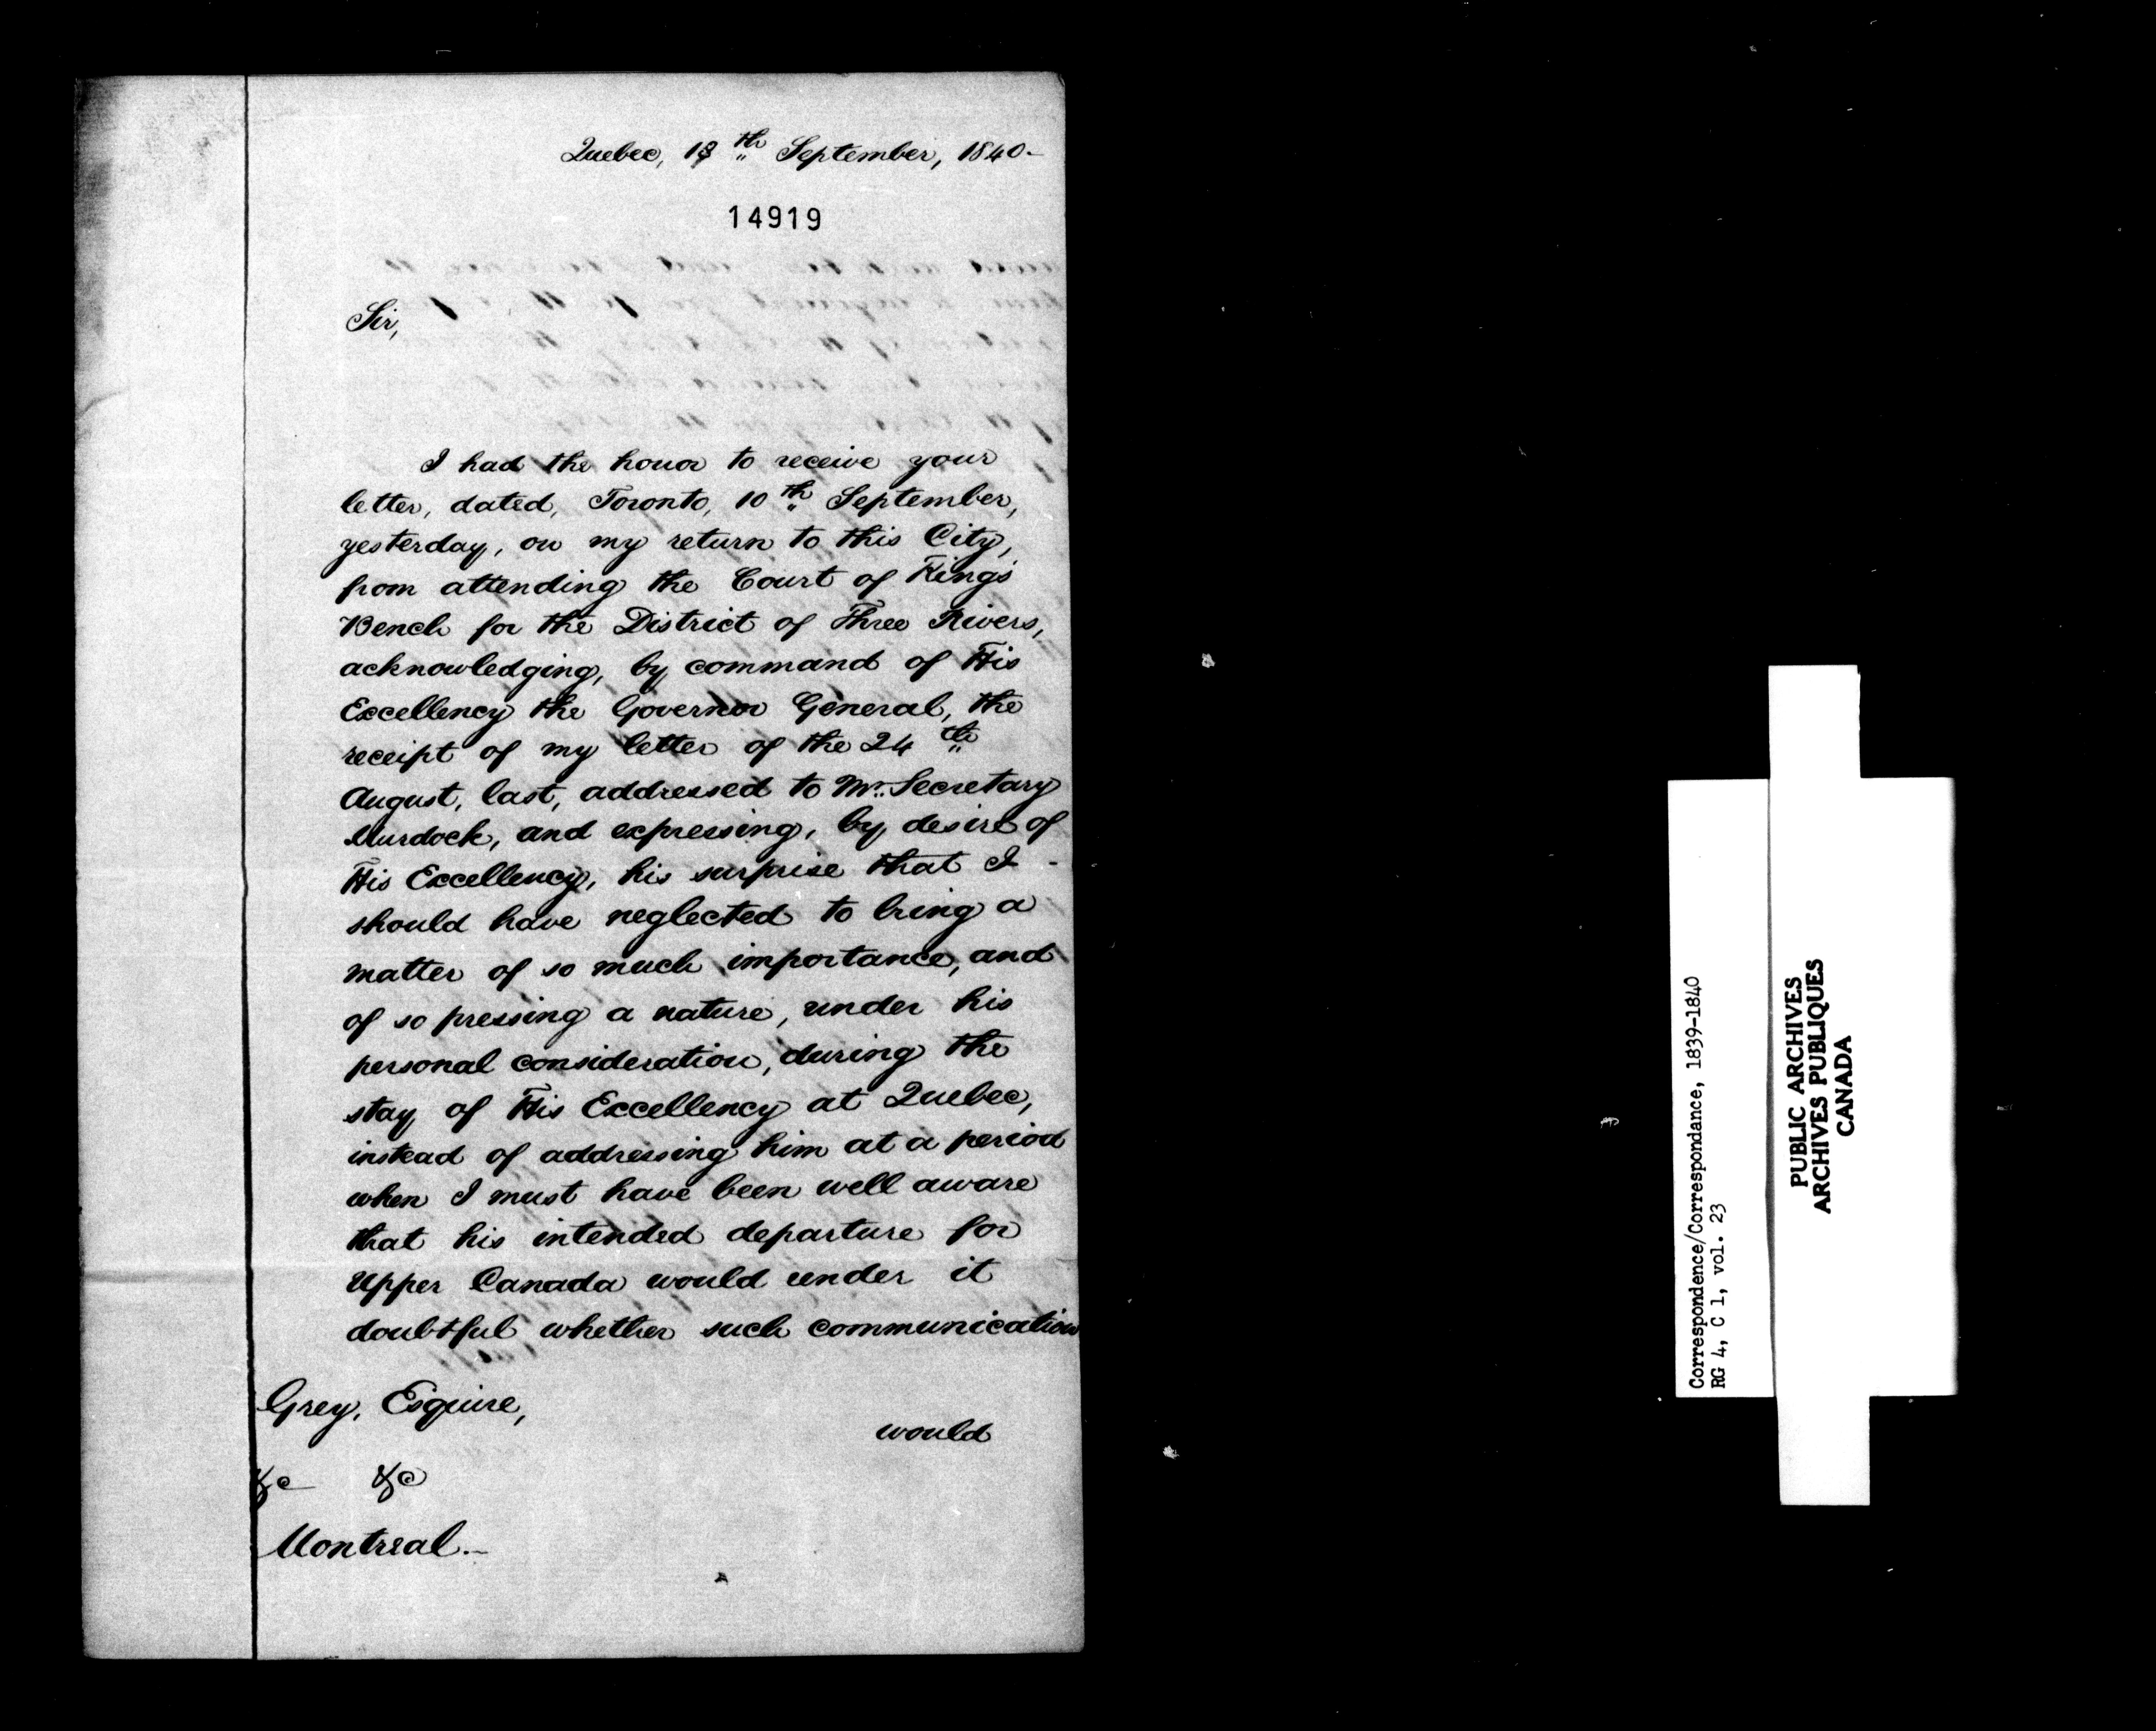 Quebec, 18th September, 1840-
14919
Sir,
I had the honor to receive your
letter, dated, Toronto, 10th September,
yesterday, on my return to this City,
from attending the Court of King's
Bench for the District of Three Rivers,
acknowledging, by command of His
Excellency the Governor General, the
receipt of my letter of the 24th
August, last, addressed to Mr. Secretary
Murdock, and expressing, by desire of
His Excellency, his surprise that I -
should have neglected to bring a
matter of so much importance, and
of so pressing a nature, under his
personal consideration, during the
stay of His Excellency at Quebec,
instead of addressing him at a period
when I must have been well aware
that his intended departure for
Upper Canada would render it
doubtful whether such communication
would
Grey, Esquire,
&c &c
Montreal.-
Correspondence/Correspondance, 1839-1840
RG 4, C 1, vol. 23
PUBLIC ARCHIVES
ARCHIVES PUBLIQUES
CANADA